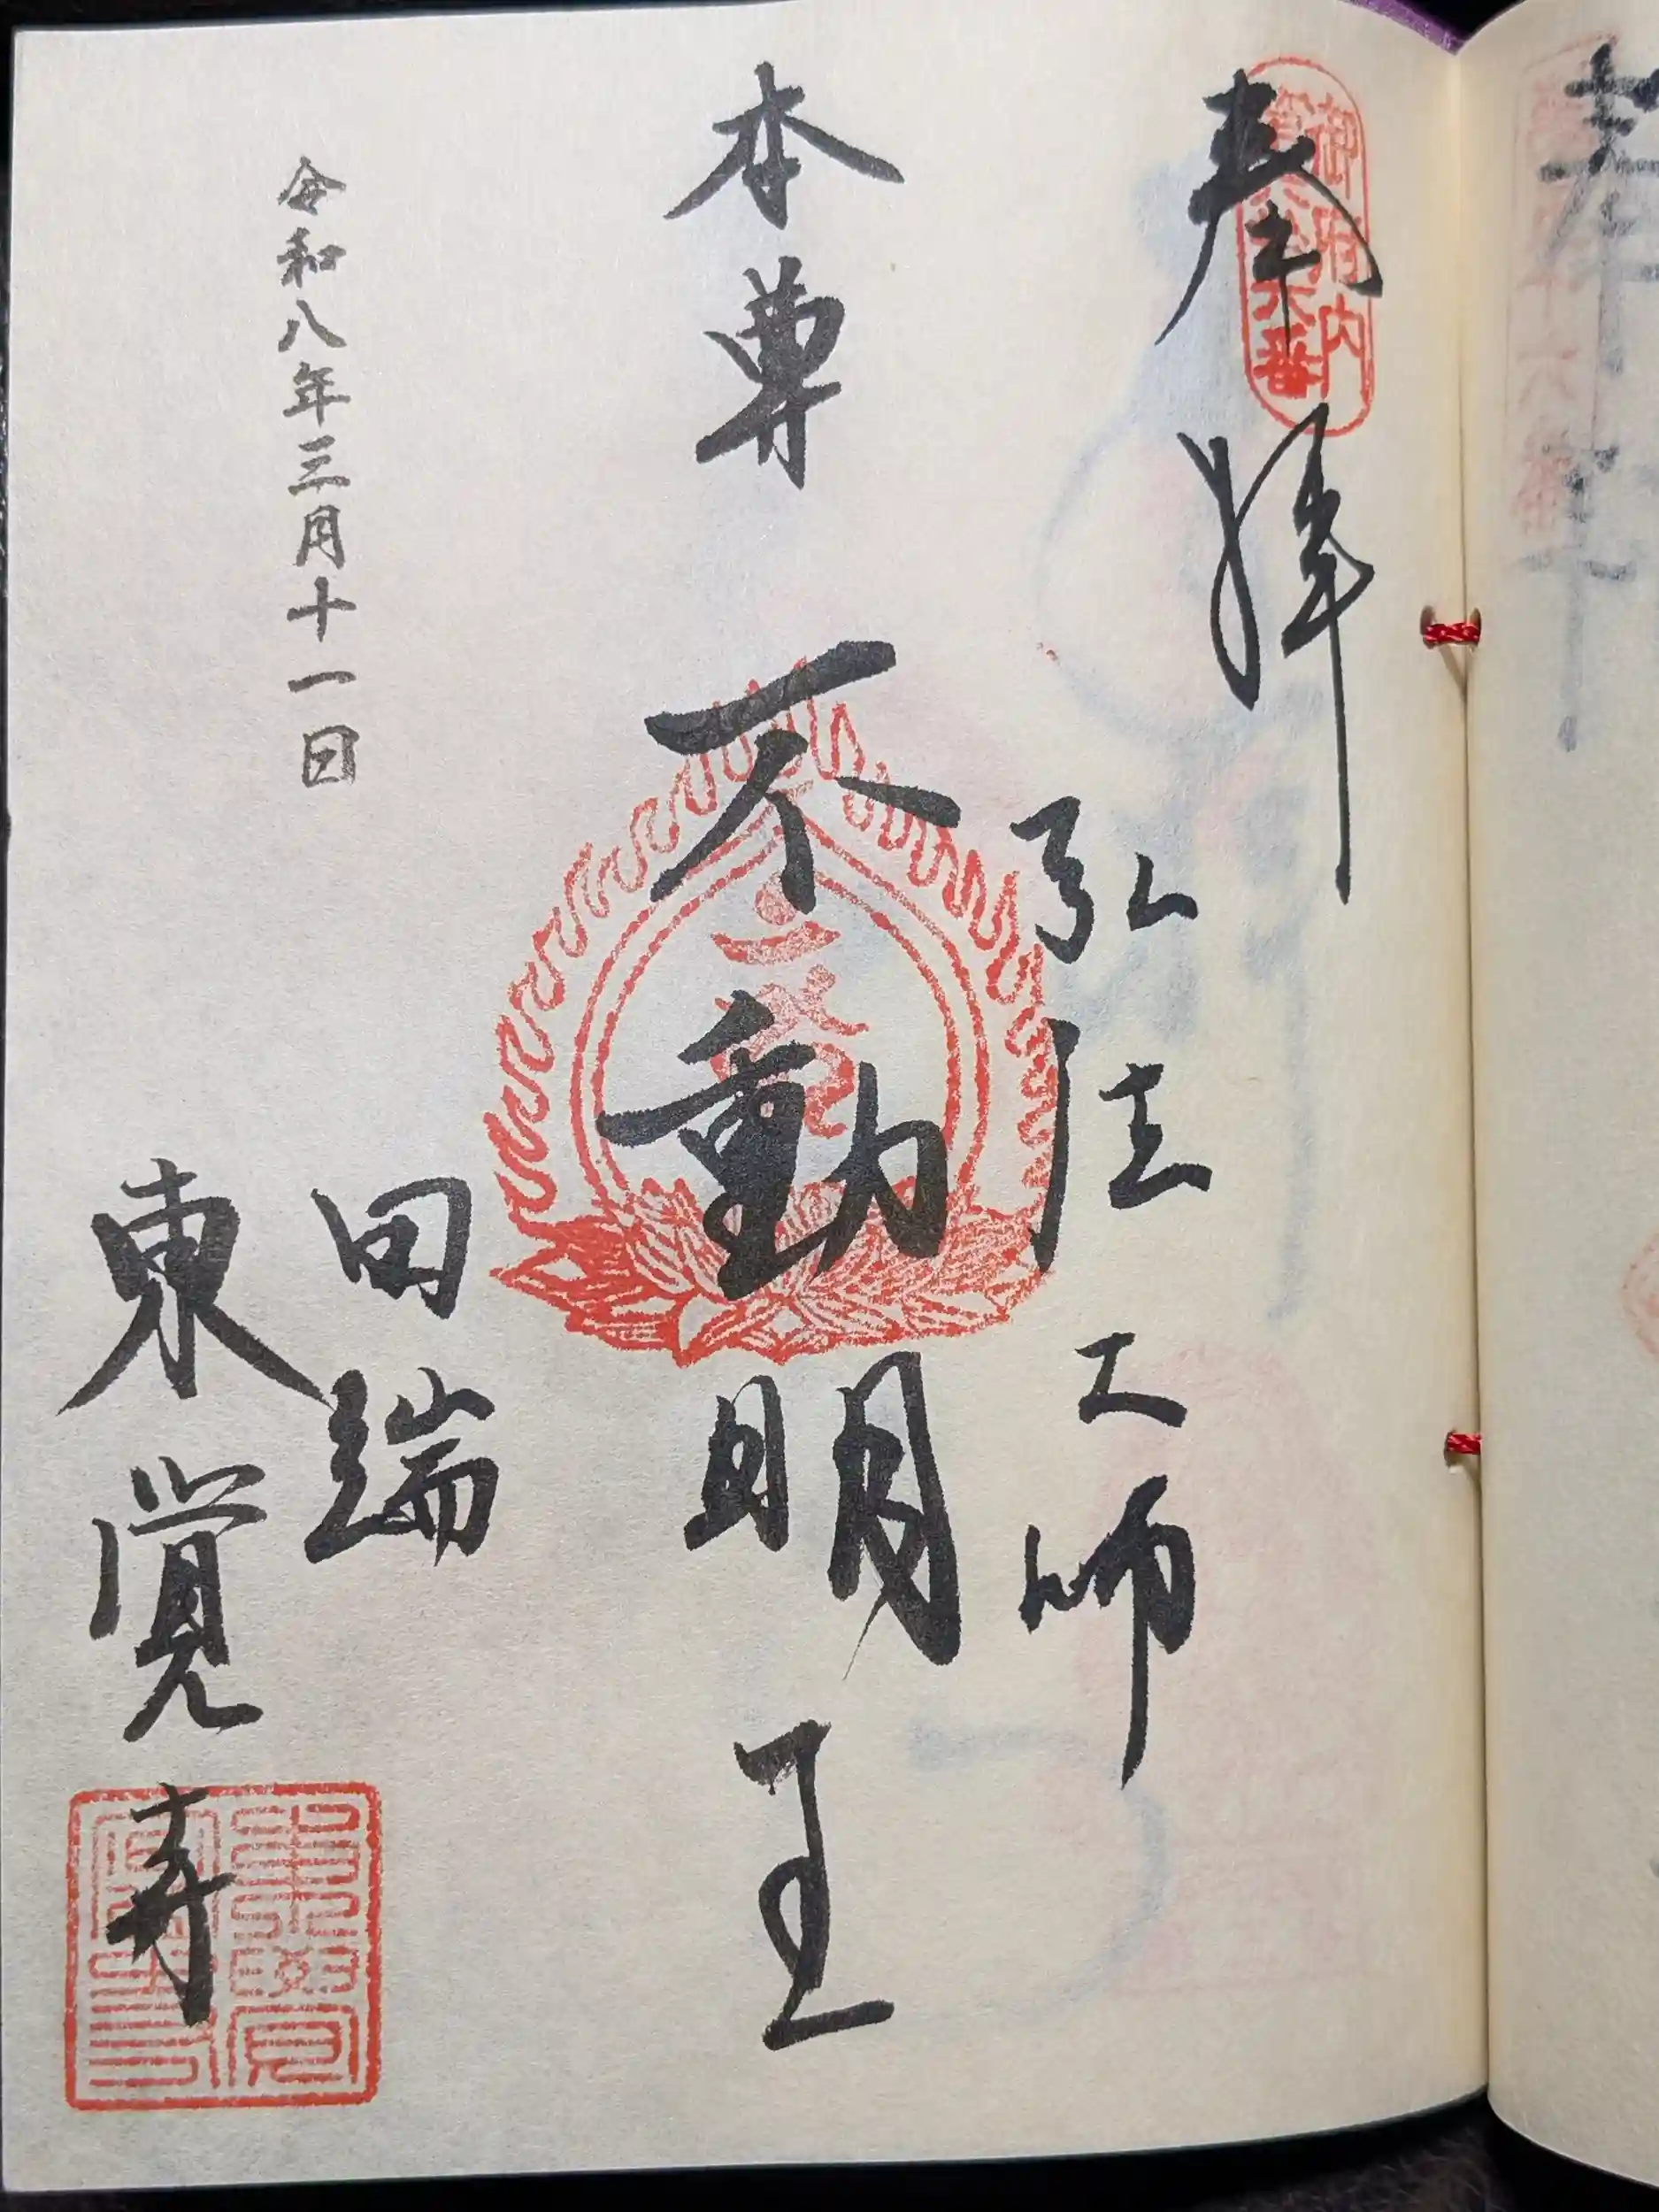 奉拝
御府内
第六十六番
弘法大師
本尊 不動明王
令和八年三月十一日
田端
東覚寺